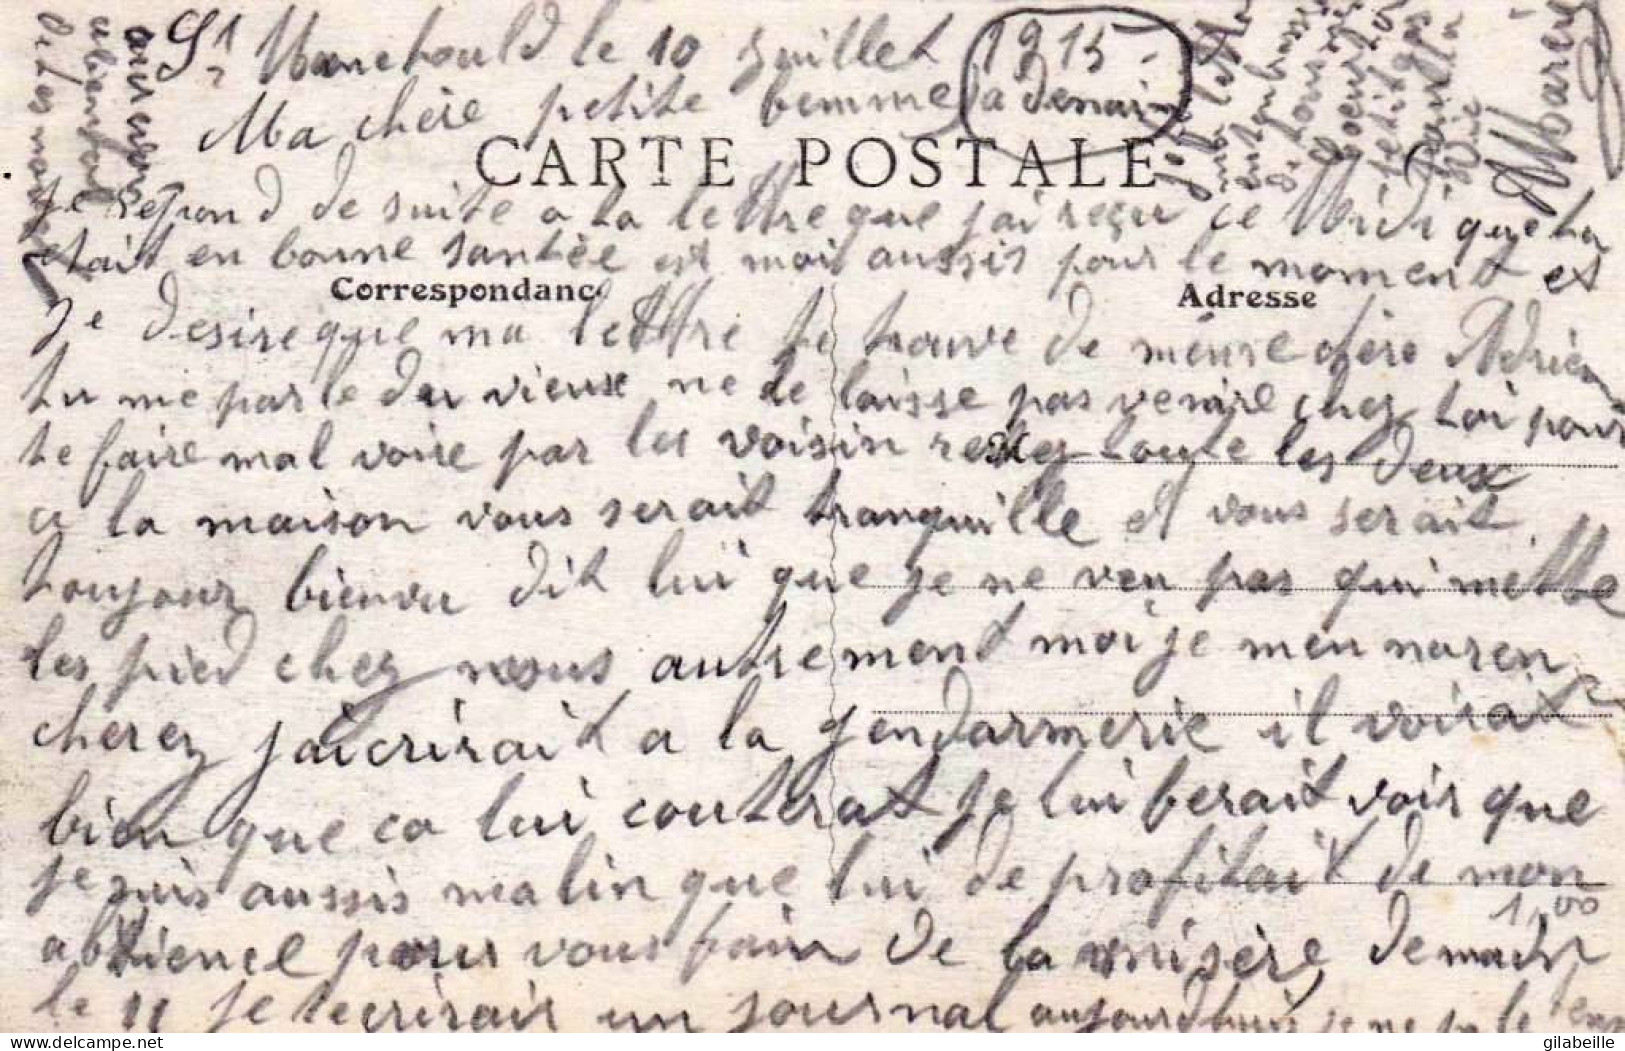 St Menehould le 10 Juillet 1915
Ma chère petite femme a denain
CARTE POSTALE
Je repond de suite a ta lettre que jai reçu ce Midi que tu
etait en bonne santèe est moi aussis pour le moment et
Correspondance
Adresse
Je desire que ma lettre te trouve de meme chère Adrien
tu me parle du vieux ne le laisse pas venire chez toi pour
te faire mal voire par les voisin restez toute les deux
a la maison vous serait tranquille et vous serait
toujour bienvu dit lui que je ne veu pas qui mette
les pied chez nous autrement moi je men
cherez jaicrirait a la gendarmerie il voirait
bien que ca lui couterat je lui ferait voir que
je suis aussis malin que lui de profitait de mon
absience pour vous fair de la misère, demain
le 11 je tecrirait un journal aujourdhui je ne le
1,00
gilabeille